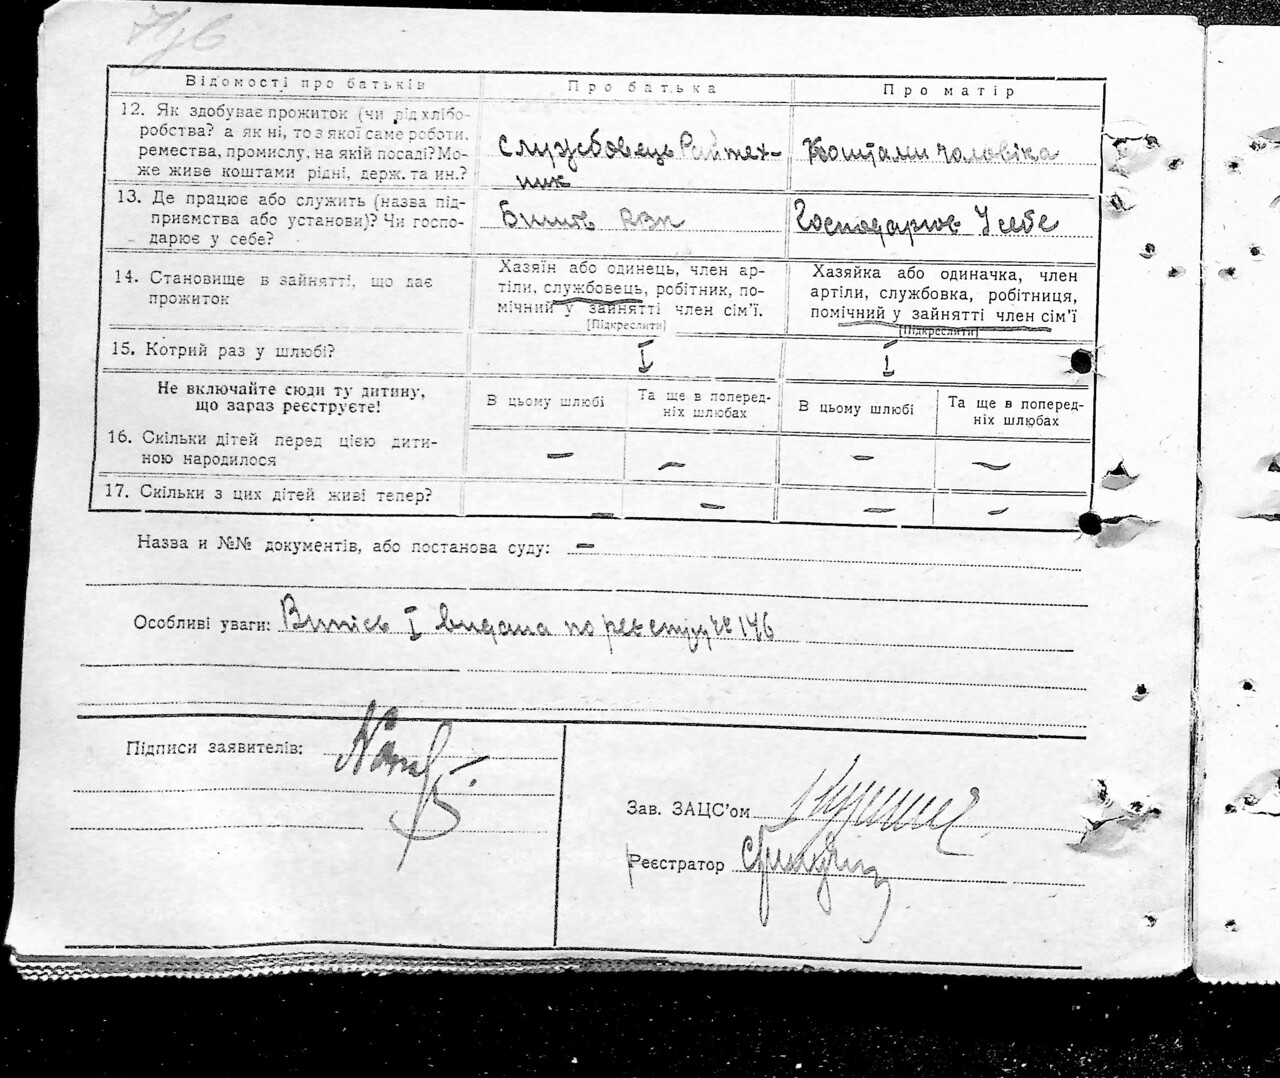 7/у6
Відомості про батьків
Про батька
Про матір
12. Як здобуває прожиток (чи від хлібо-
робства? а як ні, то з якої саме роботи,
ремества, промислу, на якій посаді? Мо-
же живе коштами рідні, держ. та ин.?
Службовець Райтех-
нік
Коштами чоловіка
13. Де працює або служить (назва під-
приємства або установи)? Чи госпо-
дарює у себе?
Господарює У себе
14. Становище в зайнятті, що дає
прожиток
Хазяїн або одинець, член ар-
тіли, службовець, робітник, по-
мічний у зайнятті член сім'ї.
[Підкреслити]
Хазяйка або одиначка, член
артіли, службовка, робітниця,
помічний у зайнятті член сім'ї
[Підкреслити]
15. Котрий раз у шлюбі?
I
I
Не включайте сюди ту дитину,
що зараз реєструєте!
В цьому шлюбі
Та ще в поперед-
ніх шлюбах
В цьому шлюбі
Та ще в поперед-
ніх шлюбах
16. Скільки дітей перед цією дити-
ною народилося
— — — —
17. Скільки з цих дітей живі тепер?
— — — —
Назва и №№ документів, або постанова суду: —
Особливі уваги: Випись I видана по реєстру № 146
Підписи заявителів:
Зав. ЗАЦС'ом
Реєстратор